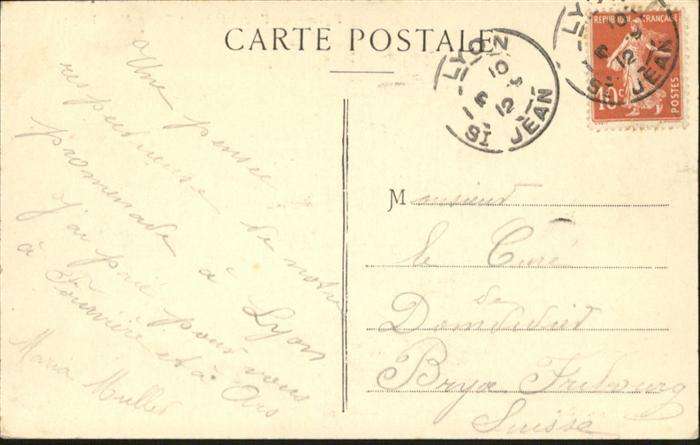 CARTE POSTALE
LYON
10
6
12
ST JEAN
REPUBLIQUE FRANÇAISE
10c
POSTES
LYON
10
6
12
ST JEAN
Une pensée
respectueuse de notre
promenade à Lyon
j'ai prié pour vous
à Fourvière et à Ars
Maria Muller
Monsieur
le Curé
de
Domdidier
Fribourg
Suisse